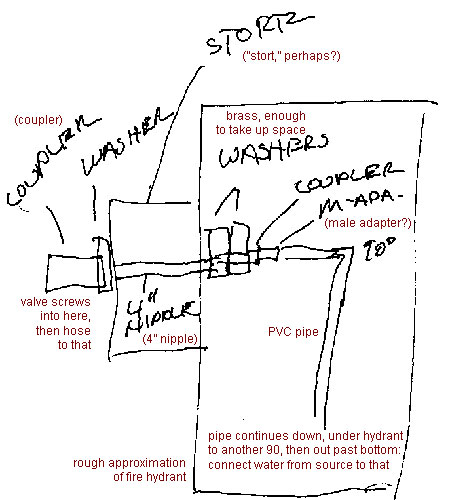 STORTZ
("stort," perhaps?)
(coupler)
COUPLER
WASHER
brass, enough
to take up space
WASHERS
COUPLER
M-ADA-
(male adapter?)
90°
valve screws
into here,
then hose
to that
4"
NIPPLE
(4" nipple)
PVC pipe
pipe continues down, under hydrant
to another 90, then out past bottom:
connect water from source to that
rough approximation
of fire hydrant